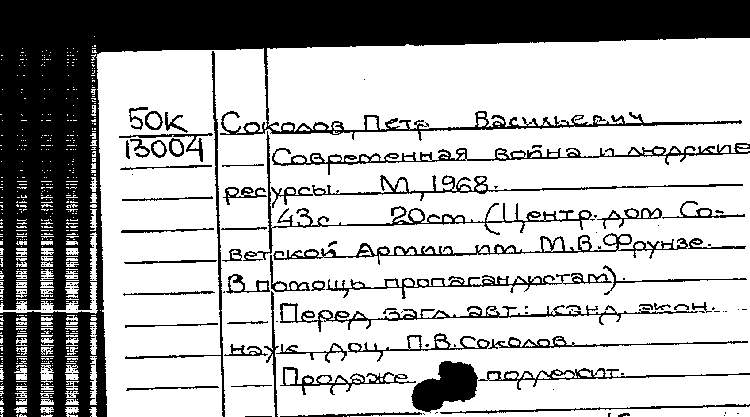 50К Соколов, Петр Васильевич
13004 Современная война и людские
ресурсы. М., 1968.
43с. 20см. (Центр. дом Со-
ветской Армии им. М.В.Фрунзе.
В помощь пропагандистам).
Перед загл. авт.: канд. экон.
наук, доц. П.В.Соколов.
Продаже подлежит.